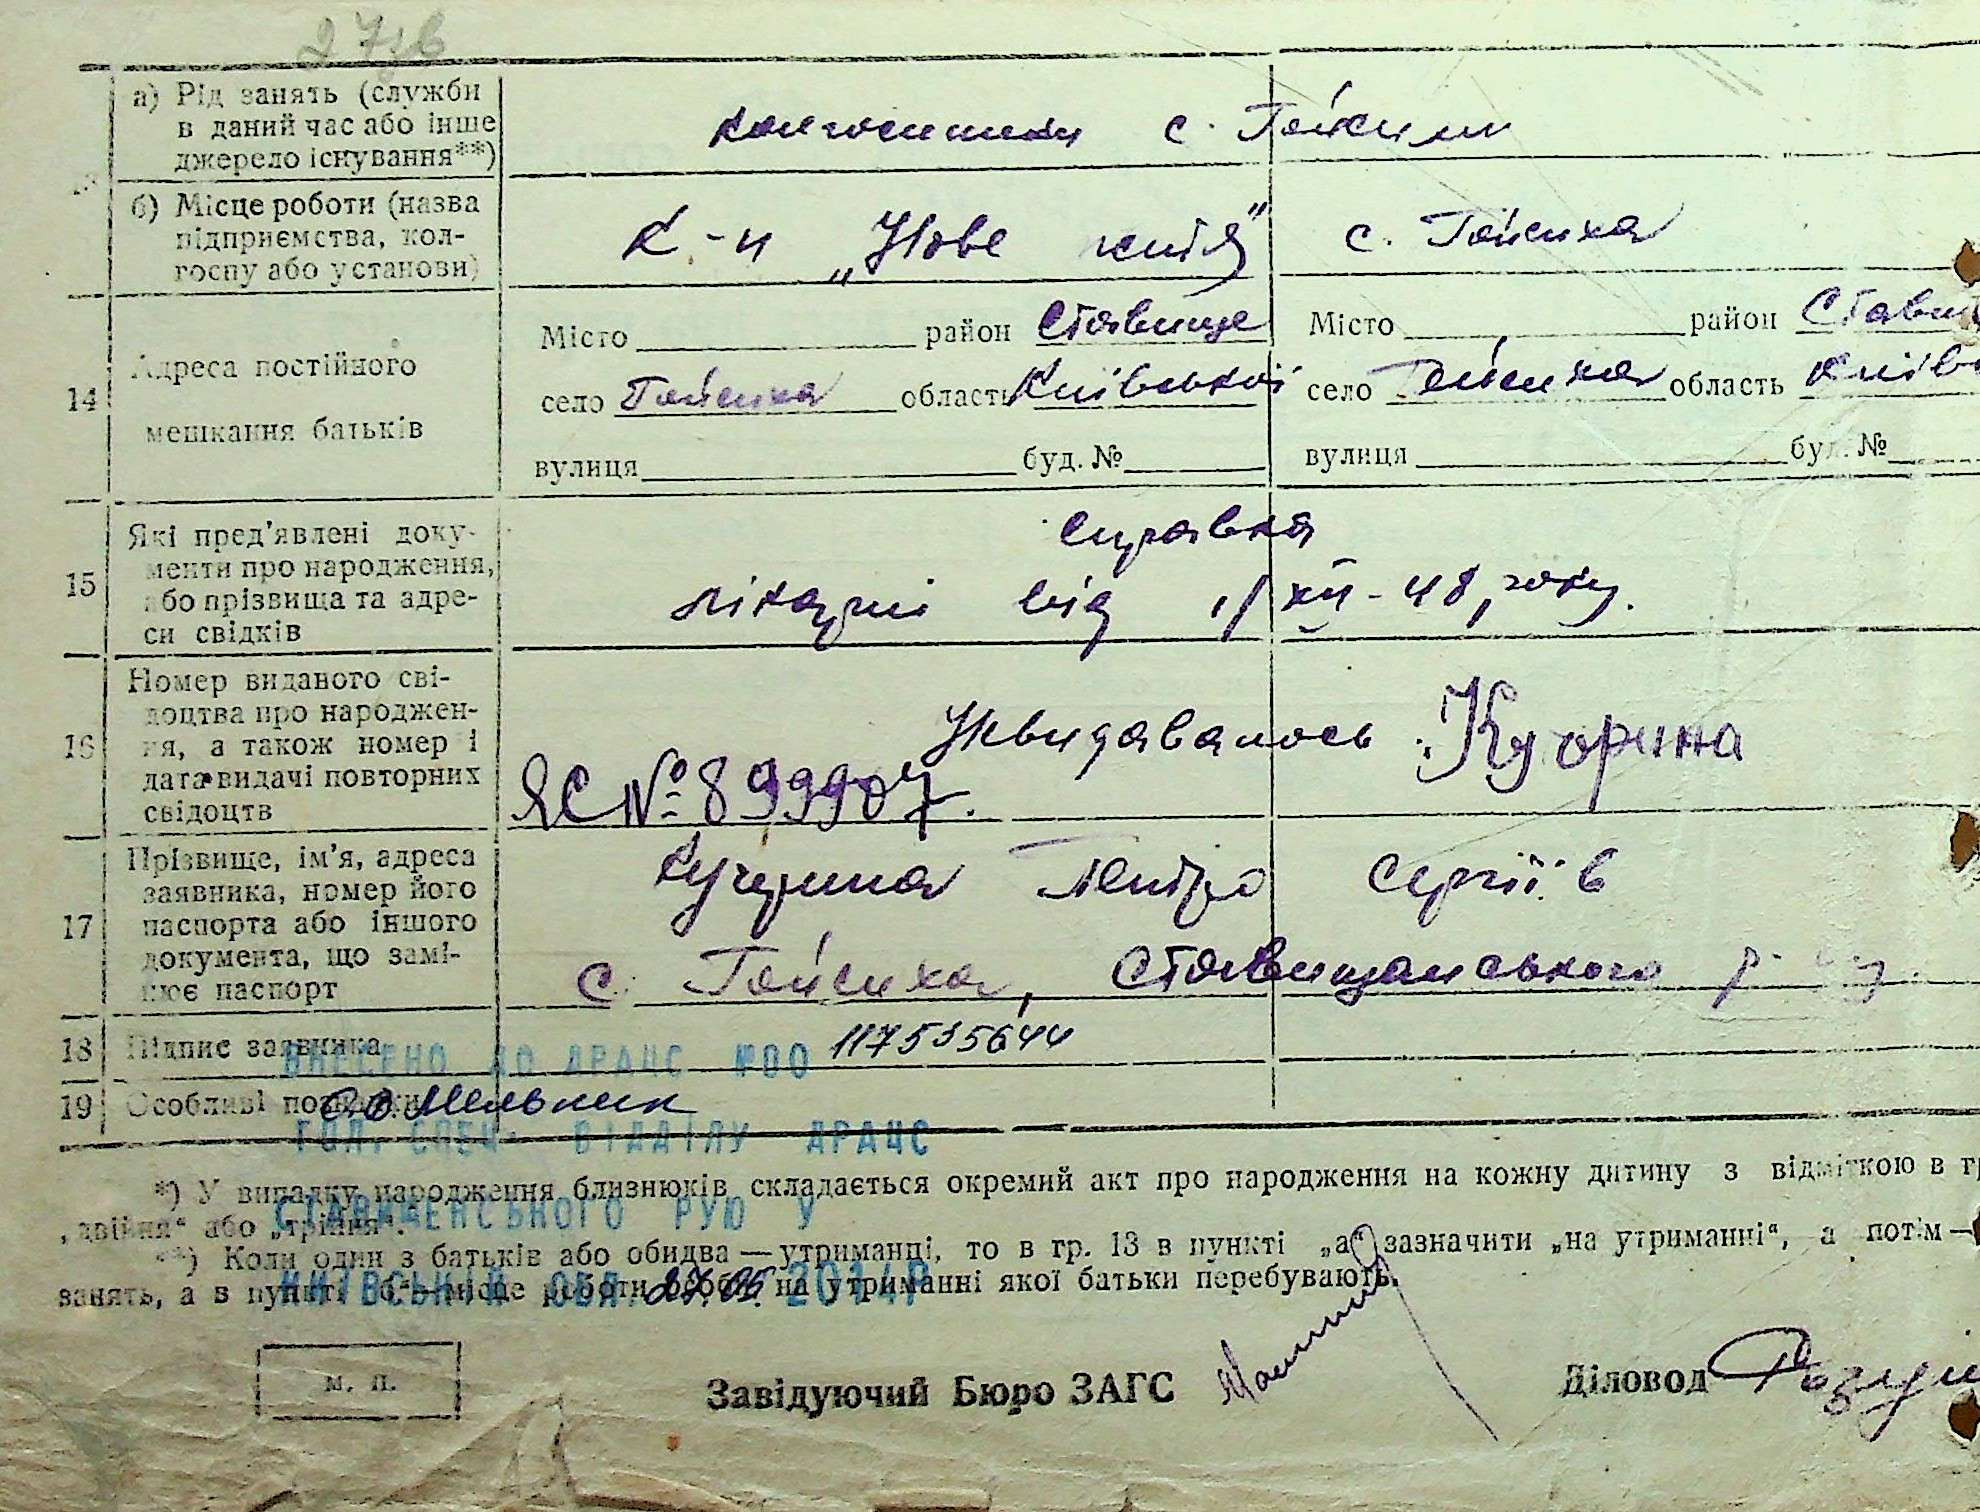 27зв
а) Рід занять (служби
в даний час або інше
джерело існування**)
колгоспники с. Гейсиха
б) Місце роботи (назва
підприємства, кол-
госпу або установи)
к-п „Нове життя" с. Гейсиха
14
Адреса постійного
мешкання батьків
Місто район Ставище Місто район Ставищ
село Гейсиха область Київської село Гейсиха область Київс
вулиця буд. № вулиця буд. №
15
Які пред'явлені доку-
менти про народження,
або прізвища та адре-
си свідків
Справка
лікарні від XII-48 року.
16
Номер виданого сві-
доцтва про народжен-
ня, а також номер і
дата видачі повторних
свідоцтв
Не видавалось
ЯС № 899907.
17
Прізвище, ім'я, адреса
заявника, номер його
паспорта або іншого
документа, що замі-
нює паспорт
Петро Сергіїв
с. Гейсиха, Ставищанського р-ну.
18 Підпис заявника
117535644
ВНЕСЕНО ДО ДРАЦС №00
19 Особливі познаки
О.О. Мельник
ГОЛ. СПЕЦ. ВІДДІЛУ ДРАЦС
*) У випадку народження близнюків складається окремий акт про народження на кожну дитину з відміткою в гр
„двійня“ або „трійня“.
СТАВИЩЕНСЬКОГО РУЮ У
**) Коли один з батьків або обидва — утриманці, то в гр. 13 в пункті „а“ зазначити „на утриманні“, а потім —
занять, а в пункті „б“ — місце роботи особи, на утриманні якої батьки перебувають.
КИЇВСЬКІЙ ОБЛ. 2014Р
м. п.
Завідуючий Бюро ЗАГС
Діловод